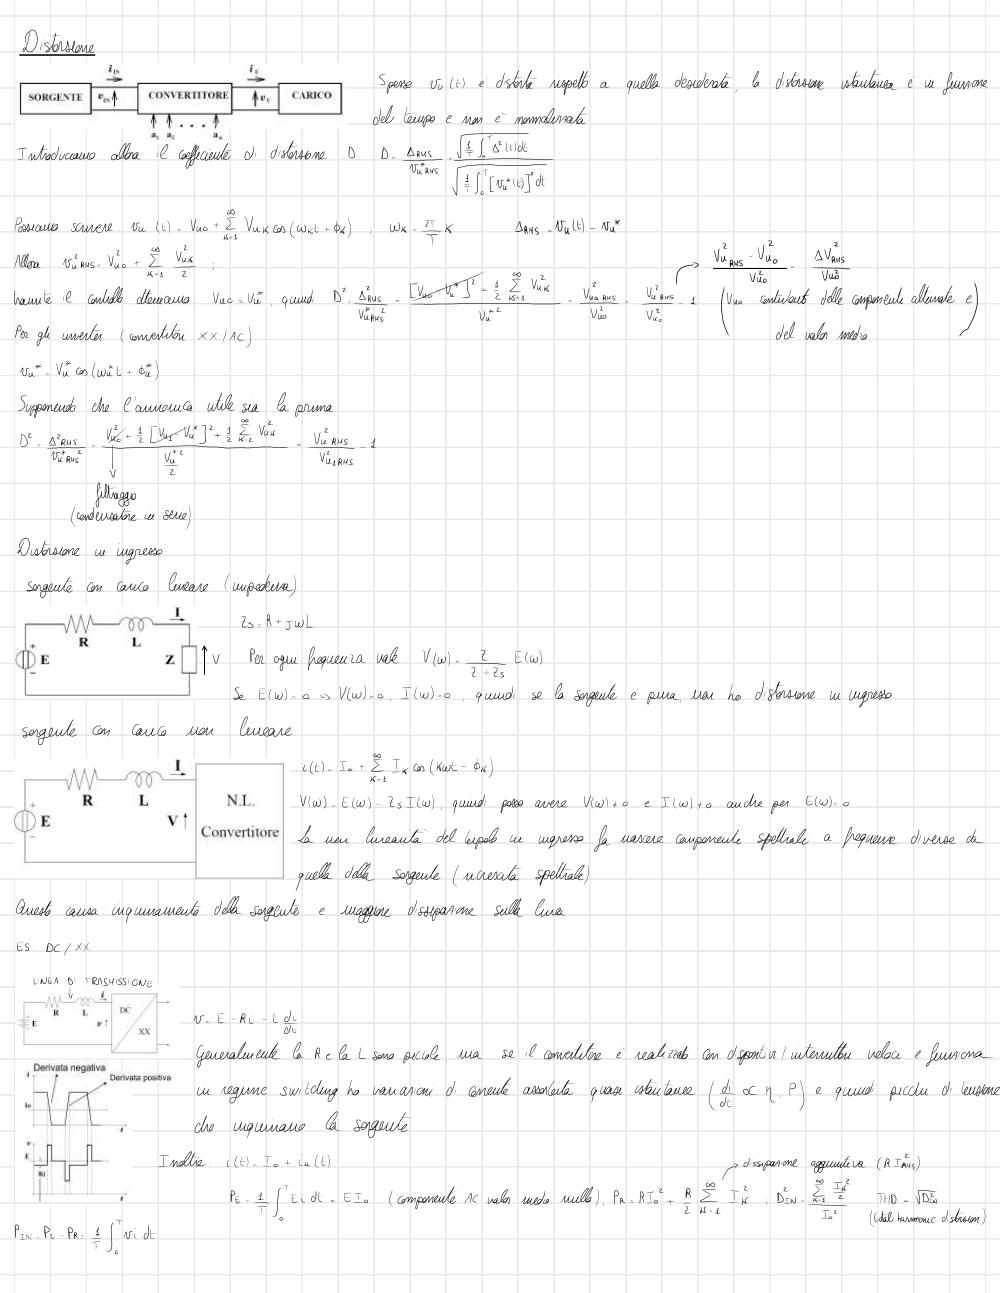 Distorsione
i_IN i_U
SORGENTE v_IN CONVERTITORE v_U CARICO
a_1 a_2 . . . a_n
Spesso v_u(t) è distorta rispetto a quella desiderata, la distorsione istantanea è in funzione
del tempo e non è normalizzata
Introduciamo allora il coefficiente di distorsione D D = Δ_RMS / v_u*_RMS = √(1/T ∫_0^T Δ²(t)dt) / √(1/T ∫_0^T [v_u*(t)]² dt)
Possiamo scrivere v_u(t) = V_u0 + Σ_{K=1}^∞ V_uK cos(ω_K t + ϕ_K) ; ω_K = 2π/T K Δ_RMS = v_u(t) - v_u*
Allora v_u²_RMS = V_u0² + Σ_{K=1}^∞ V_uK²/2 ;
tramite il controllo otteniamo V_u0 = V_u*, quindi D² = Δ²_RMS / V_u*²_RMS = ([V_u0 - V_u*]² + 1/2 Σ_{K=1}^∞ V_uK²) / V_u*² = V_ua²_RMS / V_u0² = V_u²_RMS / V_u0² - 1
(V_u²_RMS - V_u0²) / V_u0² = ΔV²_RMS / V_u0²
(V_u0 contributo delle componente alternate e
del valor medio)
Per gli inverter (convertitori XX/AC)
v_u* = V_u* cos(ω_u* t + ϕ_u*)
Supponendo che l'armonica utile sia la prima
D² = Δ²_RMS / v_u*²_RMS = (V_u0² + 1/2 [V_u1 - V_u*]² + 1/2 Σ_{K=2}^∞ V_uK²) / (V_u*²/2) = V_u²_RMS / V_u1²_RMS - 1
filtraggio
(condensatore in serie)
Distorsione in ingresso
sorgente con carico lineare (impedenza)
R L I
E Z V
Z_S = R + jωL
Per ogni frequenza vale V(ω) = Z / (Z + Z_S) E(ω)
Se E(ω) = 0 => V(ω) = 0, I(ω) = 0, quindi se la sorgente è pura, non ho distorsione in ingresso
sorgente con carico non lineare
R L I
E V N.L.
Convertitore
i(t) = I_0 + Σ_{K=1}^∞ I_K cos(Kωt - ϕ_K)
V(ω) = E(ω) - Z_S I(ω), quindi posso avere V(ω) ≠ 0 e I(ω) ≠ 0 anche per E(ω) = 0
La non linearità del bipolo in ingresso fa nascere componente spettrale a frequenze diverse da
quella della sorgente (ricrescita spettrale)
Questo causa inquinamento della sorgente e maggiore dissipazione sulla linea
ES DC/XX
LINEA DI TRASMISSIONE
R L i
E v DC
XX
v = E - Ri - L di/dt
Generalmente la R e la L sono piccole ma se il convertitore è realizzato con dispositivi/interruttori veloci e funziona
in regime switching ho variazioni di corrente assorbita quasi istantanee (di/dt ∝ η, P) e quindi picchi di tensione
che inquinano la sorgente
Derivata negativa
Derivata positiva
i
I_0
t
v
E
Ri
t
Inoltre i(t) = I_0 + i_a(t)
dissipazione aggiuntiva (R I²_RMS)
P_E = 1/T ∫_0^T E i dt = E I_0 (componente AC valor medio nullo), P_R = R I_0² + R/2 Σ_{K=1}^∞ I_K² , D²_IN = Σ_{K=1}^∞ I_K²/2 / I_0² THD = √D²_IN
(total harmonic distorsion)
P_IN = P_E - P_R = 1/T ∫_0^T v i dt